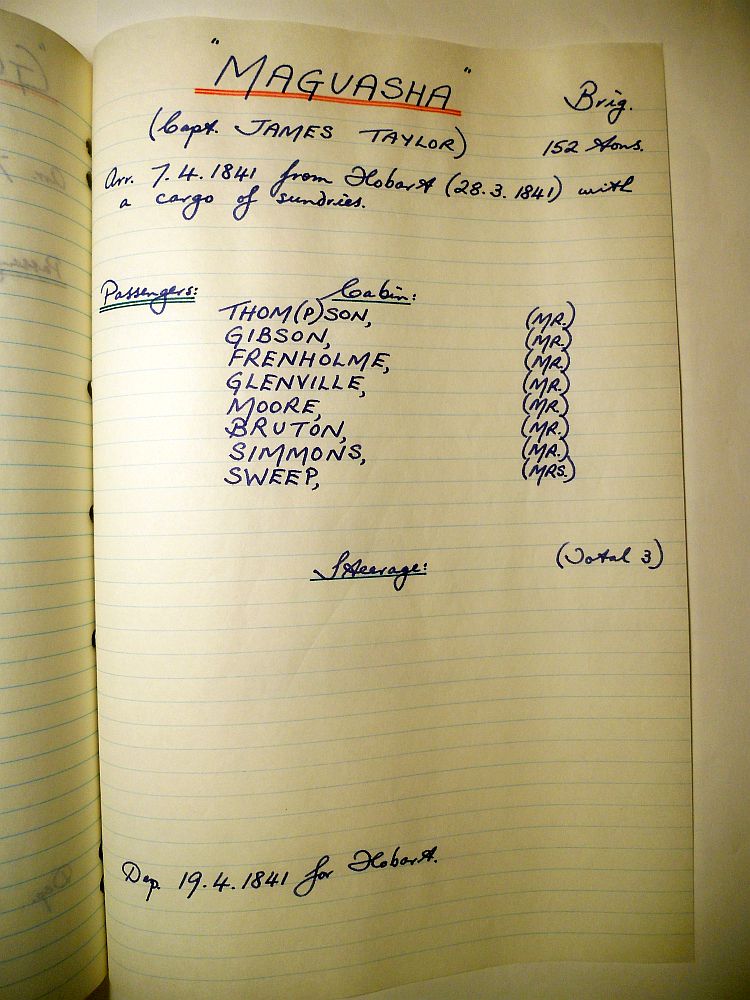 "MAGUASHA"
Brig.
(Capt. JAMES TAYLOR)
152 tons.
Arr. 7.4.1841 from Hobart (28.3.1841) with
a cargo of sundries.
Passengers: Cabin:
THOM(P)SON, (MR.)
GIBSON, (MR.)
FRENHOLME, (MR.)
GLENVILLE, (MR.)
MOORE, (MR.)
BRUTON, (MR.)
SIMMONS, (MR.)
SWEEP, (MRS.)
Steerage: (Total 3)
Dep. 19.4.1841 for Hobart.